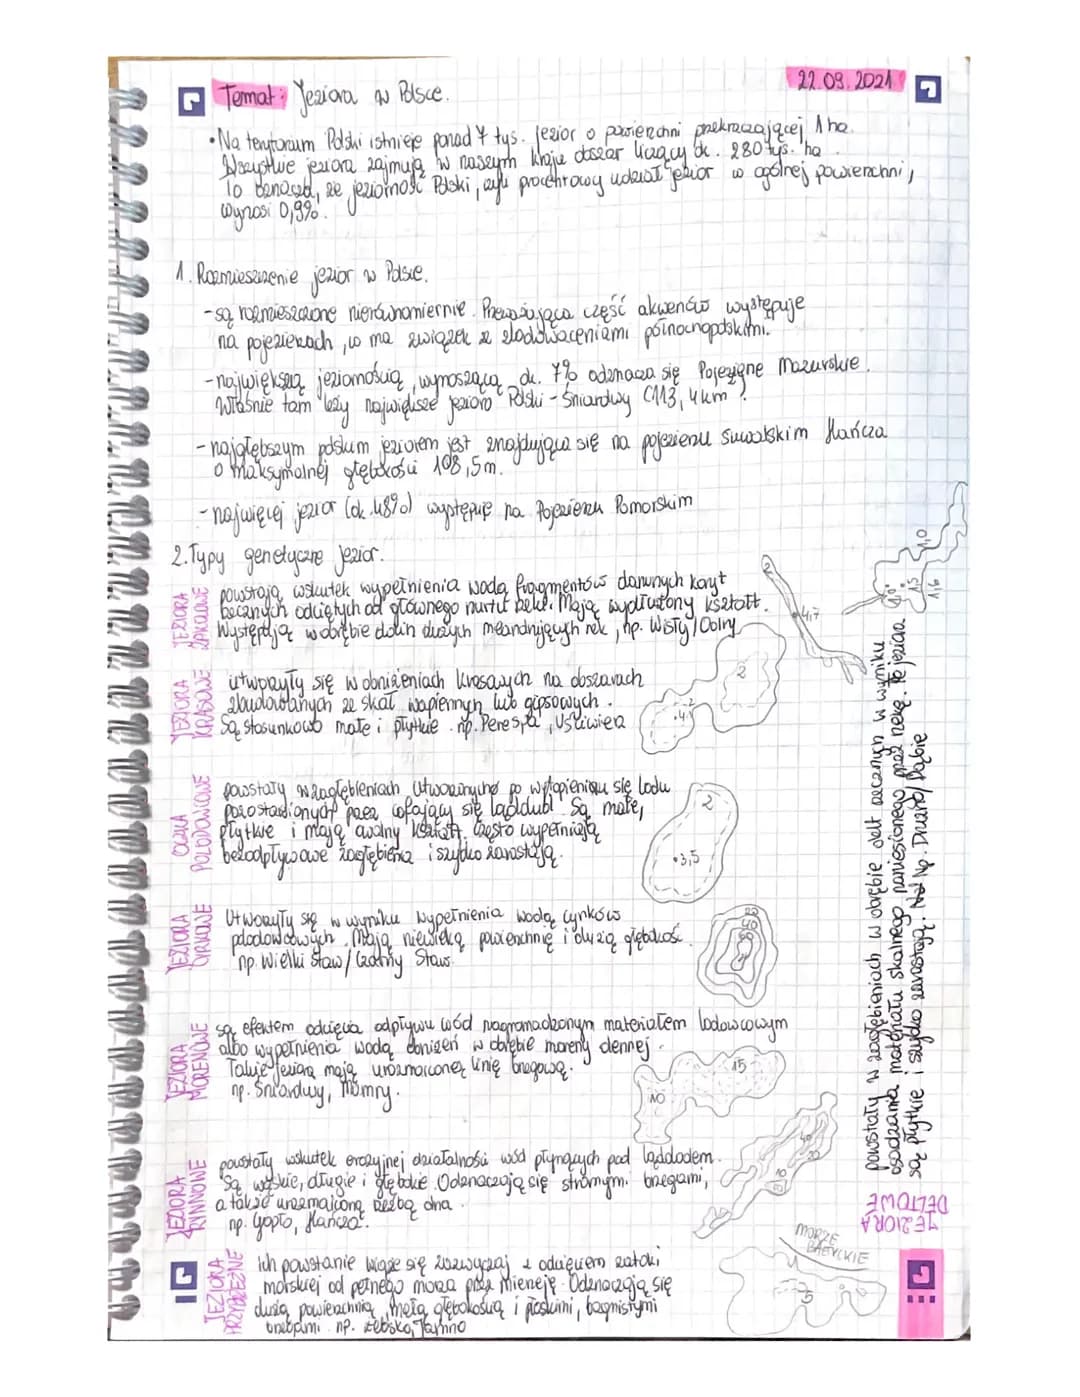 22.09.2021
Temat: Jeziora w Polsce.
• Na terytorium Polski istnieje ponad 7 tys. jezior o powierzchni przekraczającej 1 ha.
Wszystkie jeziora zajmują w naszym kraju obszar liczący ok. 280 tys. ha.
To oznacza, że jeziorność Polski, czyli procentowy udział jezior w ogólnej powierzchni,
wynosi 0,9%.
1. Rozmieszczenie jezior w Polsce.
- są rozmieszczone nierównomiernie. Przeważająca część akwenów występuje
na pojezierzach, co ma związek ze zlodowaceniami północnopolskimi.
- największą jeziornością, wynoszącą ok. 7% odznacza się Pojezierze Mazurskie.
Właśnie tam leży największe jezioro Polski - Śniardwy (113,4 km².
- najgłębszym polskim jeziorem jest znajdująca się na pojezierzu Suwalskim Hańcza
o maksymalnej głębokości 108,5m.
- najwięcej jezior (ok. 48%) występuje na Pojezierzu Pomorskim
2. Typy genetyczne jezior.
JEZIORA
ZAKOLOWE
powstają wskutek wypełnienia wodą fragmentów dawnych koryt
rzecznych odciętych od głównego nurtu rzeki. Mają wydłużony kształt.
Występują w obrębie dolin dużych meandrujących rzek, np. Wisły / Odry
2
4,7
JEZIORA
KRASOWE
utworzyły się w obniżeniach krasowych na obszarach
zbudowanych ze skał wapiennych lub gipsowych.
Są stosunkowo małe i płytkie. np. Perespa, Uściwierz
2
2
OCZKA
POLODOWCOWE
powstały w zagłębieniach utworzonych po wytopieniu się lodu
pozostawionych przez cofający się lądolód. Są małe,
płytkie i mają owalny kształt. Często wypełniają
bezodpływowe zagłębienia i szybko zarastają.
2
•3,5
JEZIORA
CYRKOWE
Utworzyły się w wyniku wypełnienia wodą cyrków
polodowcowych. Mają niewielką powierzchnię i dużą głębokość.
np. Wielki Staw / Czarny Staw
JEZIORA
MORENOWE
są efektem odcięcia odpływu wód nagromadzonym materiałem lodowcowym
albo wypełnienia wodą obniżeń w obrębie moreny dennej.
Takie jeziora mają urozmaiconą linię brzegową.
np. Śniardwy, Mamry.
15
JEZIORA
RYNNOWE
powstały wskutek erozyjnej działalności wód płynących pod lądolodem.
Są wąskie, długie i głębokie. Odznaczają się stromymi brzegami,
a także urozmaiconą rzeźbą dna.
np. Gopło, Hańcza.
JEZIORA
PRZYBRZEŻNE
Ich powstanie wiąże się zazwyczaj z odcięciem zatoki
morskiej od pełnego morza przez mierzeję. Odznaczają się
dużą powierzchnią, małą głębokością i płaskimi, bagnistymi
brzegami. np. Łebsko, Jamno
MORZE
BAŁTYCKIE
JEZIORA
DELTOWE
powstały w zagłębieniach w obrębie delt rzecznych w wyniku
osadzania materiału skalnego naniesionego przez rzekę. Te jeziora
są płytkie i szybko zarastają. np. Druzno / Dąbie
1,0
1,5
1,6